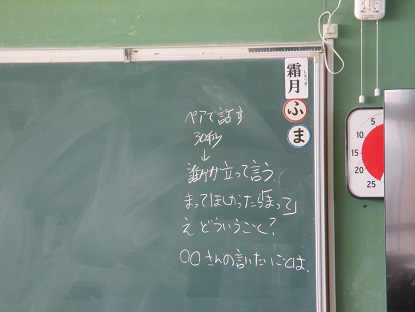 霜月
しもつき
ふ
ま
ペアで話す
30秒
↓
誰か立って言う
まってほしかったら「まって」
え どういうこと?
〇〇さんの言いたいことは、
5
10
15
20
25